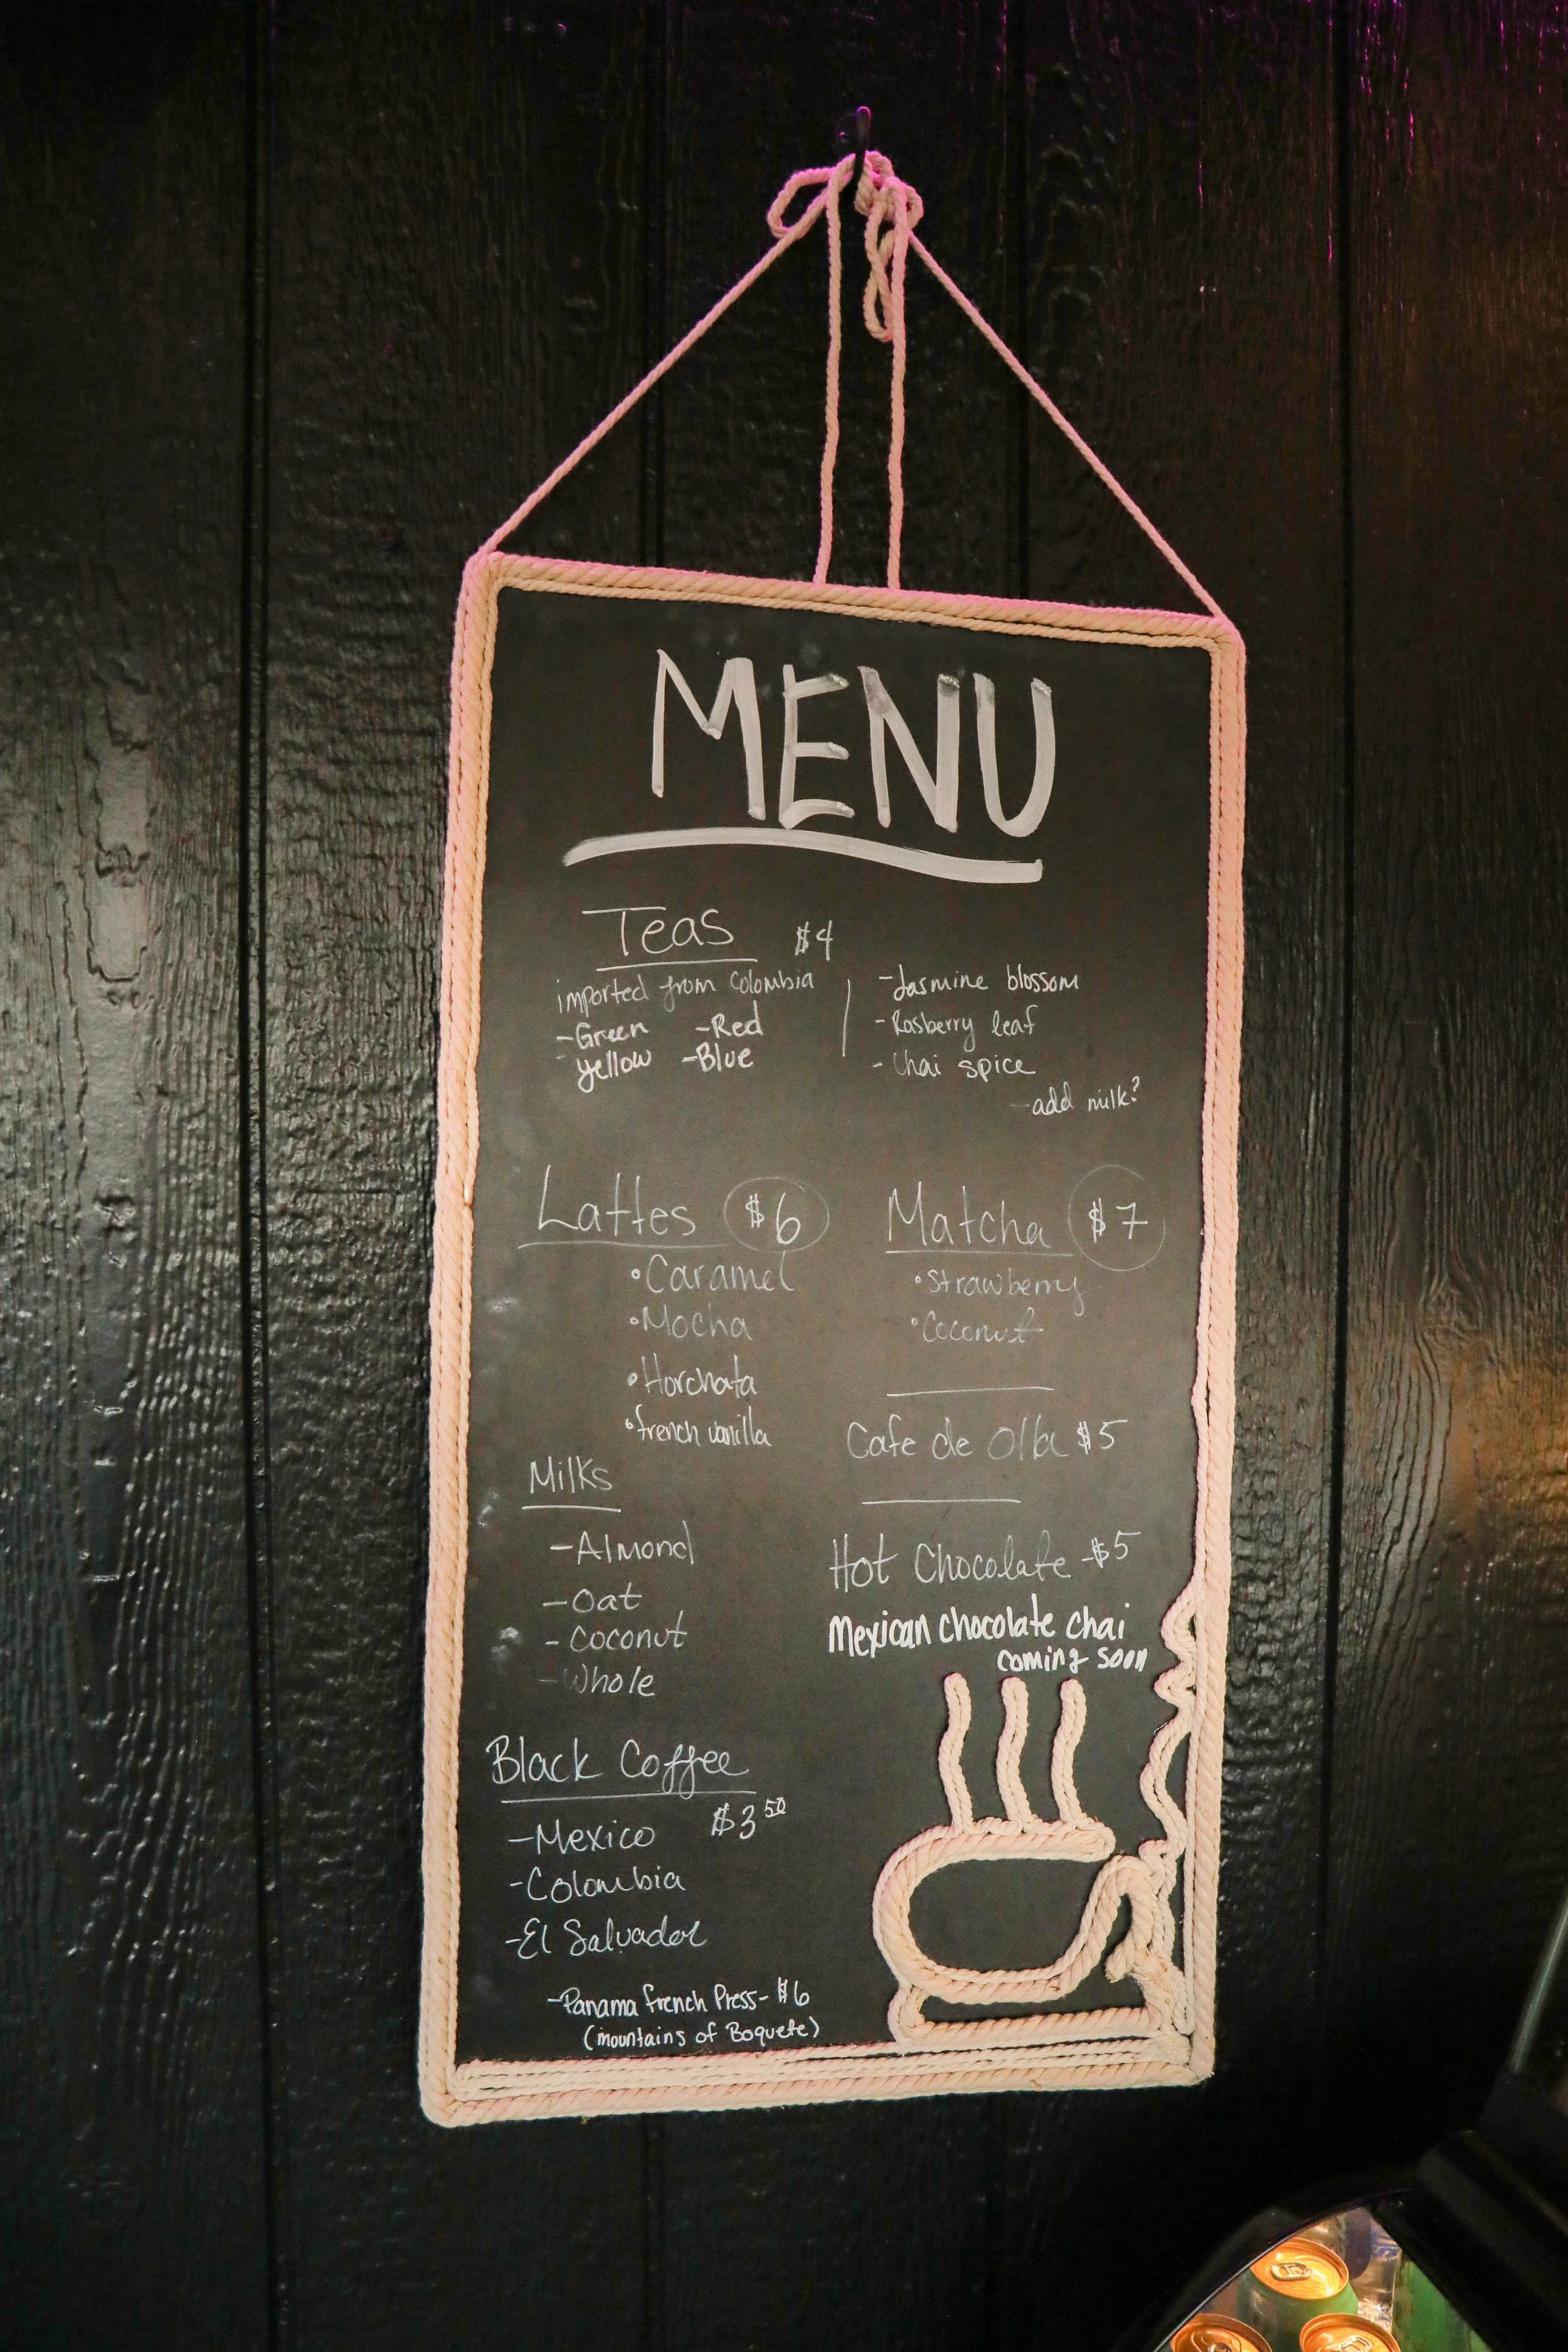 MENU
Teas $4
imported from Colombia
-Green -Red
-yellow -Blue
-Jasmine blossom
-Rasberry leaf
-Chai spice
-add milk?
Lattes $6
•Caramel
•Mocha
•Horchata
•french vanilla
Matcha $7
•Strawberry
•Coconut
Cafe de Olla $5
Hot Chocolate -$5
Mexican chocolate chai
coming soon
Milks
-Almond
-Oat
-Coconut
-Whole
Black Coffee
$3 50
-Mexico
-Colombia
-El Salvador
-Panama french Press- $6
(mountains of Boquete)